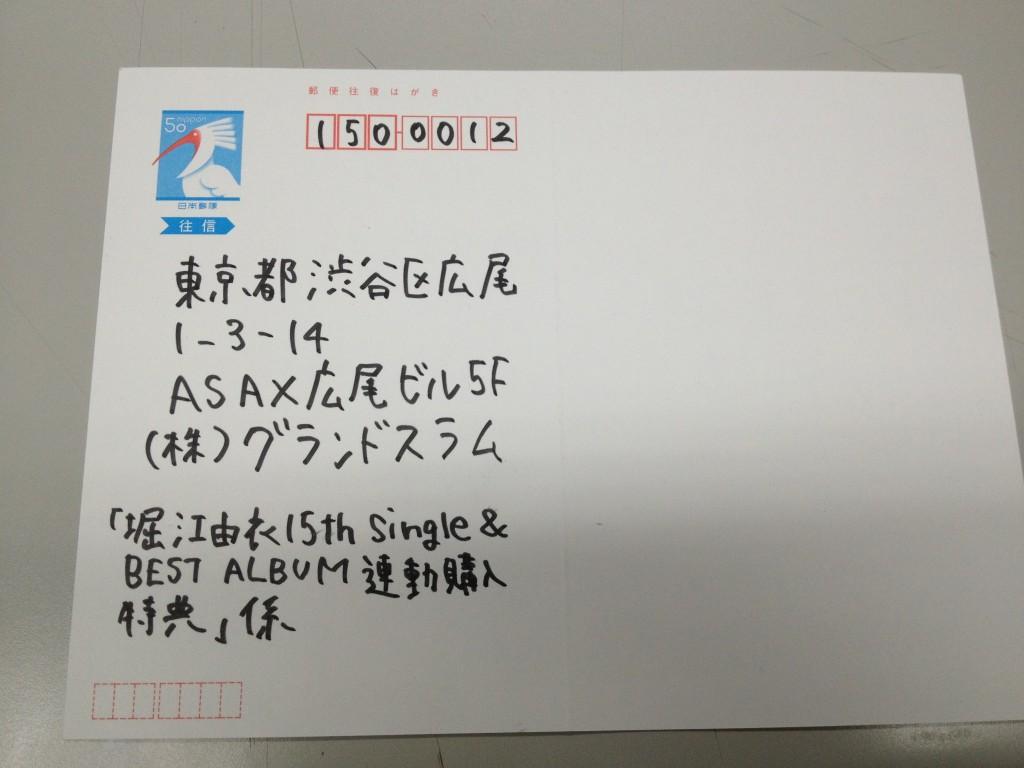 郵便往復はがき
50 nippon
150-0012
日本郵便
往信
東京都渋谷区広尾
1-3-14
ASAX広尾ビル5F
(株)グランドスラム
「堀江由衣15th Single &
BEST ALBUM 連動購入
特典」係